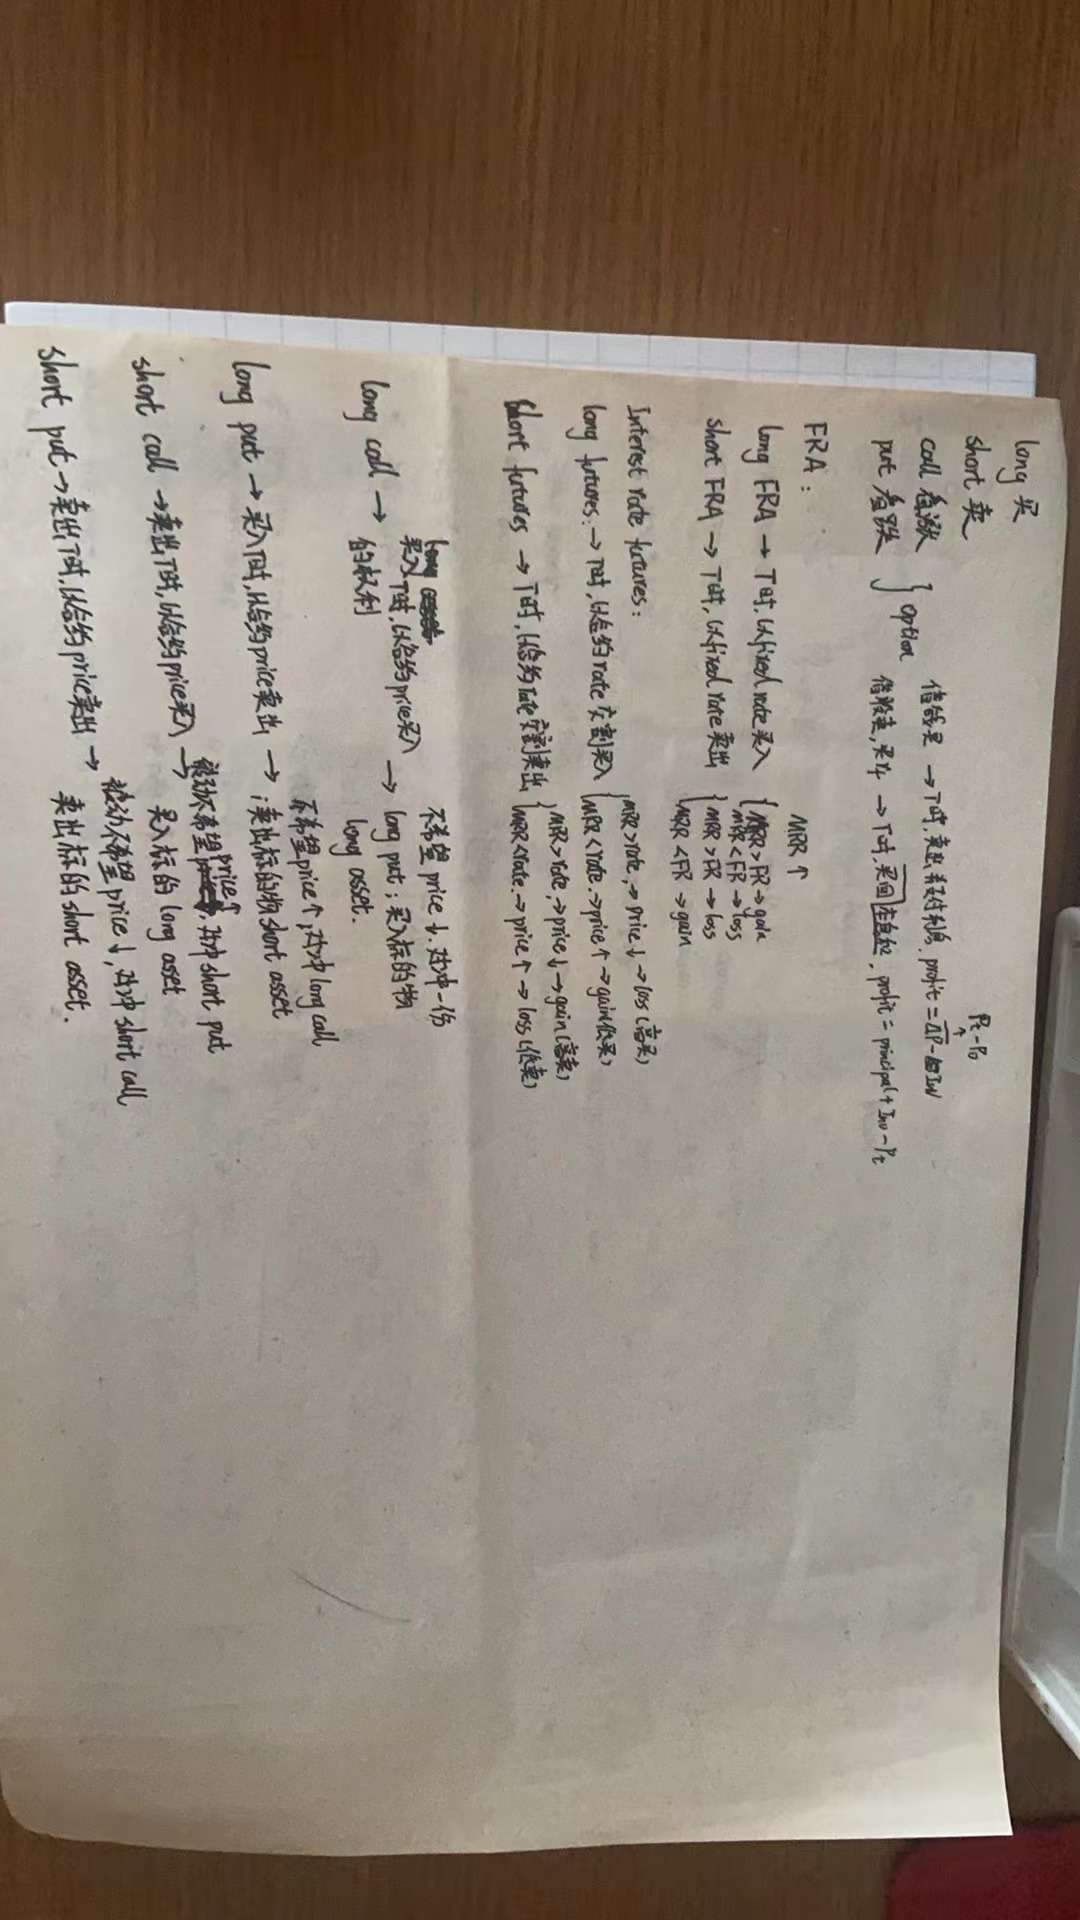 long 买
short 卖
call 看涨
put 看跌 } option
借钱买 → T时, 卖出 支付利息, profit = ΔP - Inv
Pt-P0
借股卖, 买 → T时, 买回, profit = principal + Inv - Pt
FRA:
MRR ↑
long FRA → T时, 以fixed rate买入 { MRR > FR → gain
MRR < FR → loss
short FRA → T时, 以fixed rate卖出 { MRR > FR → loss
MRR < FR → gain
Interest rate futures:
long futures: → T时, 以合约rate交割买入 { MRR > rate, → price ↓ → loss (高买)
MRR < rate. → price ↑ → gain (低买)
short futures → T时, 以合约rate交割卖出 { MRR > rate, → price ↓ → gain (高卖)
MRR < rate. → price ↑ → loss (低卖)
long call → 买入T时, 以合约price买入的权利 → 不希望price ↓. 对冲一份long put; 买入标的物long asset.
long put → 买入T时, 以合约price卖出 → 不希望price ↑, 对冲long call; 卖出标的物short asset
short call → 卖出T时, 以合约price买入 → 被动不希望price ↑, 对冲short put
买入标的long asset
short put → 卖出T时, 以合约price卖出 → 被动不希望price ↓, 对冲short call
卖出标的short asset.